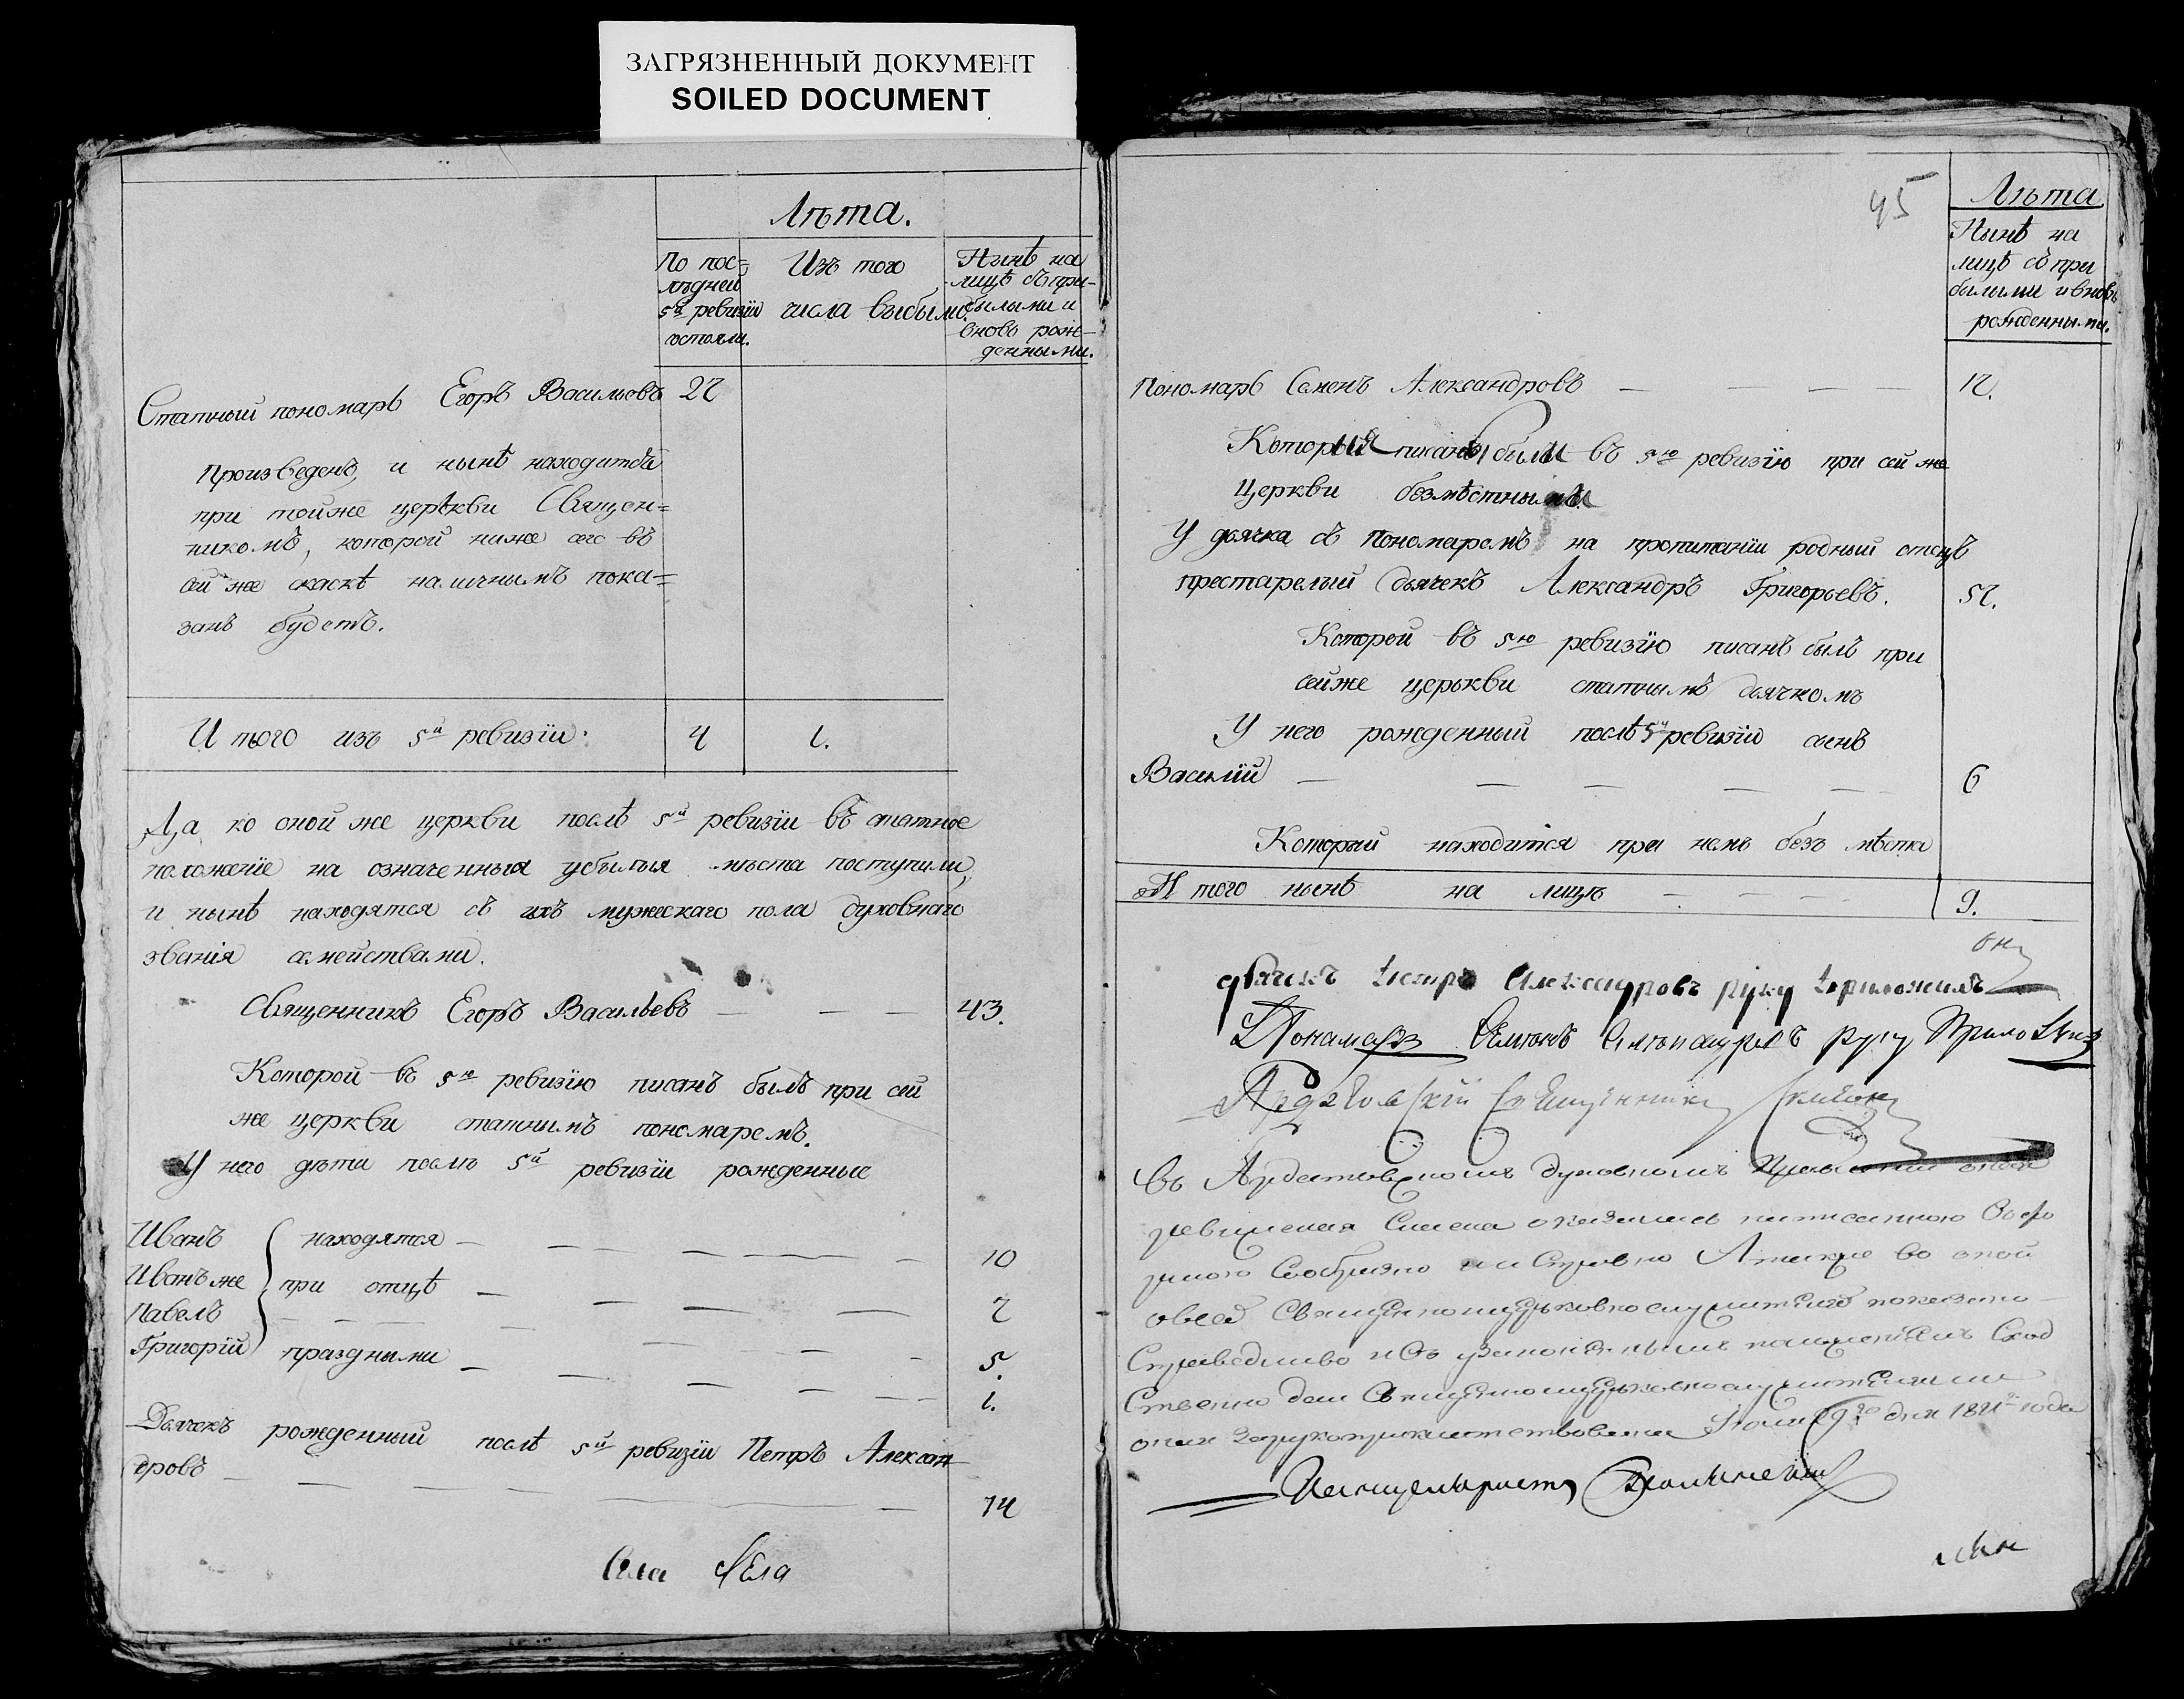 ЗАГРЯЗНЕННЫЙ ДОКУМЕНТ
SOILED DOCUMENT
Лѣта.
По пос=
лѣдней
5й ревизіи
состояли.
Изъ того
числа выбыло.
Нынѣ на
лицѣ съ при-
былыми и
вновь рож-
денными.
Статный пономарь Егоръ Васильевъ 27
Произведенъ, и нынѣ находится
при тойже церкви Священ=
никомъ, которой ниже сего въ
сей же скаскѣ наличнымъ пока=
занъ будетъ.
И того изъ 5й ревизіи: 4 1.
Да ко оной же церкви послѣ 5й ревизіи въ статное
положеніе на означенныя убылыя мѣста поступили,
и нынѣ находятся съ ихъ мужескаго пола духовнаго
званія семействами.
Священникъ Егоръ Васильевъ 43.
Которой въ 5ю ревизію писанъ былъ при сей
же церкви статнымъ пономаремъ.
У него дѣти послѣ 5й ревизіи рожденные
Иванъ находятся 10
Иванъ же при отцѣ 7
Павелъ 5.
Григорій праздными 1.
Дьячекъ рожденный послѣ 5й ревизіи Петръ Алексан
дровъ 14
Села
45
Лѣта
Нынѣ на
лицѣ съ при
былыми и вновь
рожденными.
Пономарь Семенъ Александровъ 12.
Которыя писаны были въ 5ю ревизію при сей же
Церкви безмѣстными.
У дьячка съ пономаремъ на пропитаніи родный отецъ
престарелый дьячекъ Александръ Григорьевъ. 57.
Которой въ 5ю ревизію писанъ былъ при
сейже церькви статнымъ дьячкомъ
У него рожденный послѣ 5й ревизіи сынъ
Василій 6
Который находится при немъ безъ мѣста
И того нынѣ на лицѣ 9.
дьячекъ Петръ Александровъ руку приложилъ
Понамарь Семенъ Александровъ руку Приложилъ
Ардатовскій Священникъ
Въ Ардатовскомъ духовномъ Правленіи оная
ревизская Скаска оказалась написанною
во оной
Священноцерьковнослужителей показано
Справедливо
Священноцерьковнослужителями
дня года
Канцеляристъ